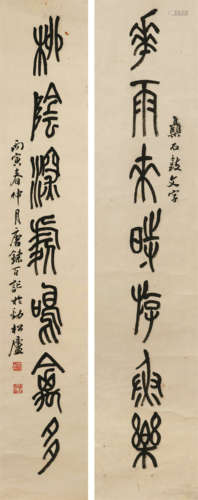 華雨來時游永樂
集石鼓文字
柳陰深處鳴禽多
丙寅春仲月唐錬百訒於勁松廬